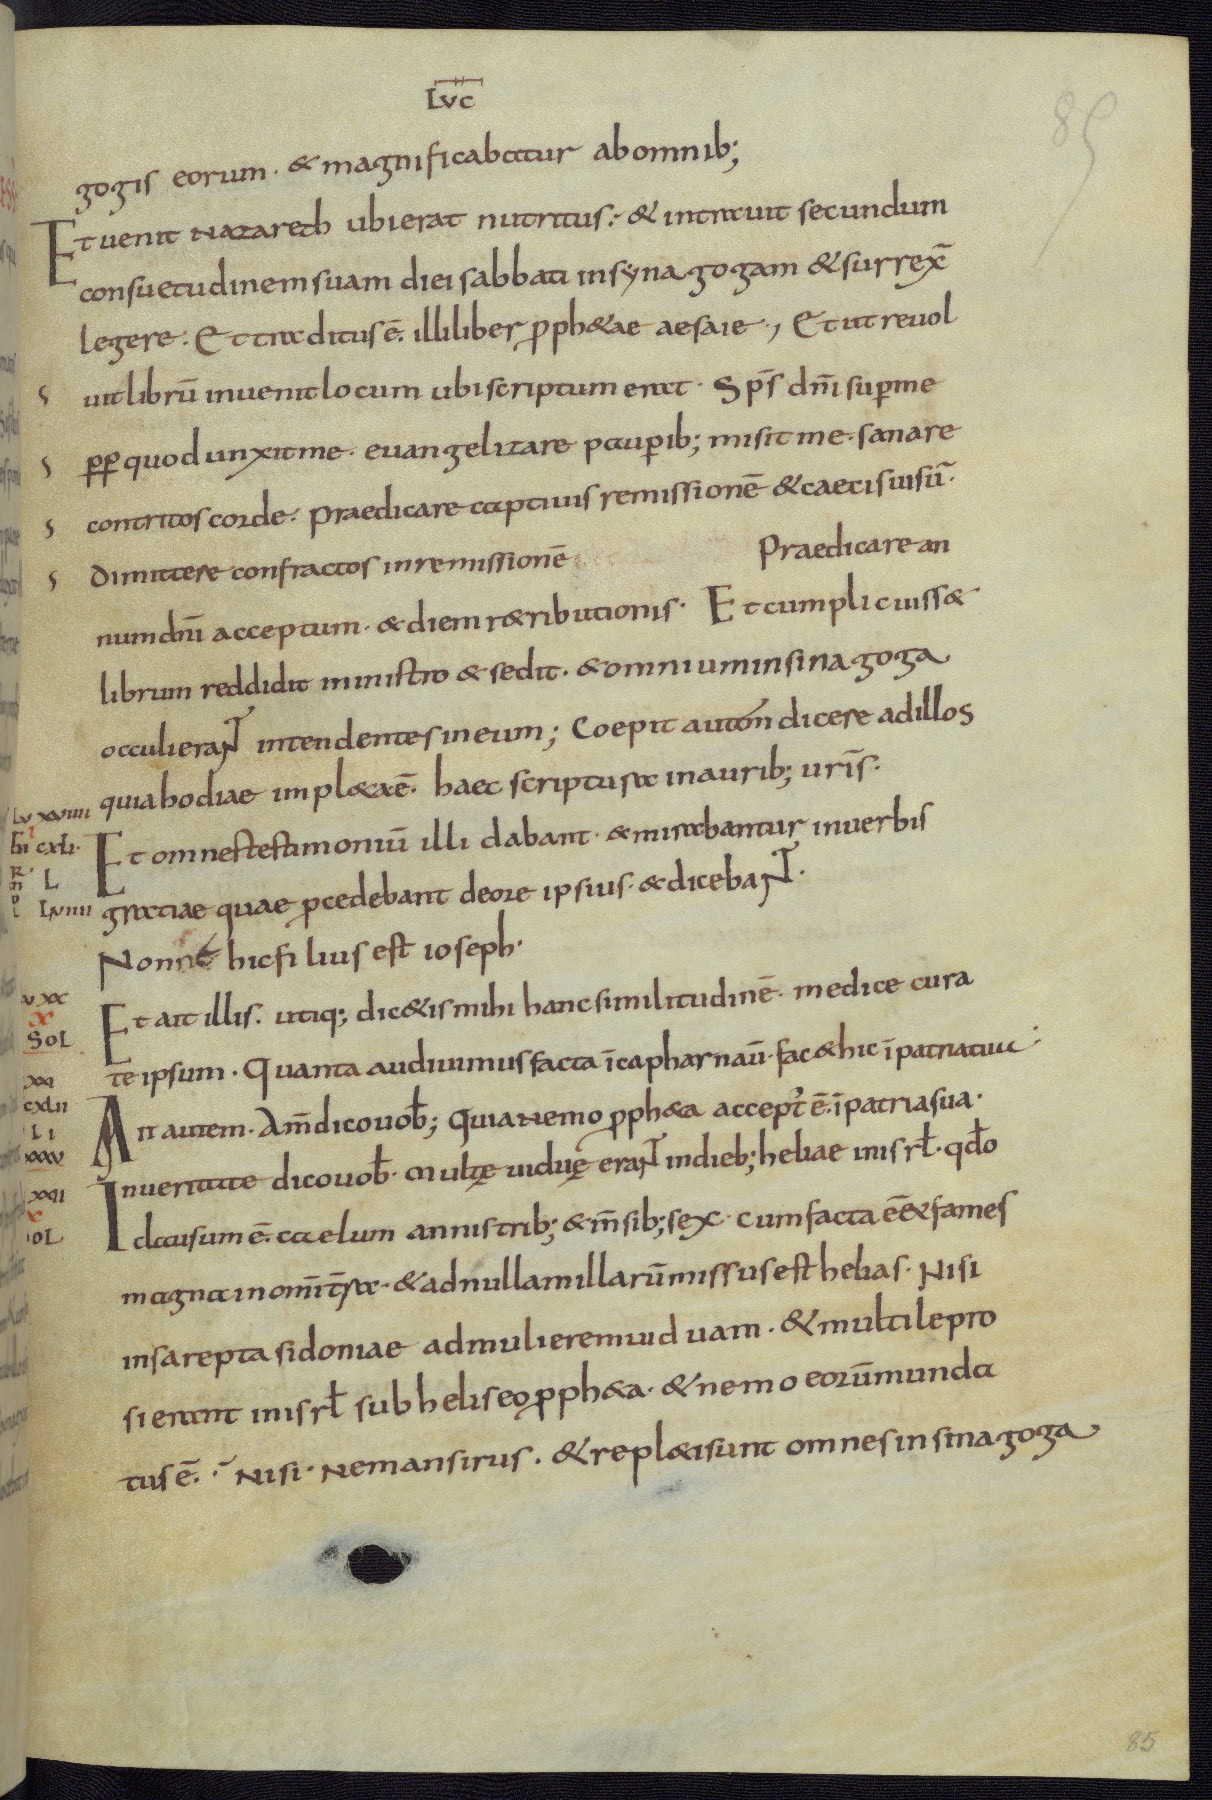 LVC
85
gogis eorum · & magnificabatur ab omnib;
Et uenit nazareth ubi erat nutritus : & intrauit secundum
consuetudinem suam die i sabbati in synagogam & surrex̄
legere . Et traditus ē illi liber pph&ae aesaie ., Et ut reuol
uit librū inuenit locum ubi scriptum erat · Sp̄s dn̄i sup me
pp quod unxit me · euangelizare paupib; misit me · sanare
contritos corde · praedicare captiuis remissionē & caecis uisū ·
dimittere confractos in remissionē Praedicare an
num dn̄i acceptum · & diem r&ributionis · Et cum plicuiss&
librum reddidit ministro & sedit · & omnium in sinagoga
occuli erant intendentes in eum ; Coepit autem dicere ad illos
quia hodiae impl&a ē haec scriptura in aurib; ur̄is ·
Et omnes testimoniū illi dabant · & mirabantur in uerbis
gratiae quae pcedebant de ore ipsius · & dicebant ·
Nonne hic filius est ioseph ·
Et ait illis . utiq; dic&is mihi hanc similitudinē · medice cura
te ipsum · Quanta audiuimus facta ī capharnaū · fac & hic ī patria tua ·
Ait autem · Am̄ dico uob̄; quia nemo pph&a accept' ē ī patria sua ·
In ueritate dico uob̄ · Multę uiduę erant in dieb; heliae in isrl̄ · qd̄o
clausum ē caelum annis trib; & m̄sib; sex · cum facta eē& fames
magna in om̄i t̄ra · & ad nullam illarū missus est helias · Nisi
in sarepta sidoniae ad mulierem uiduam · & multi lepro
si erant in isrl̄ sub heliseo pph&a · & nemo eorū munda
tus ē · Nisi · neman sirus . & repl&i sunt omnes in sinagoga
85